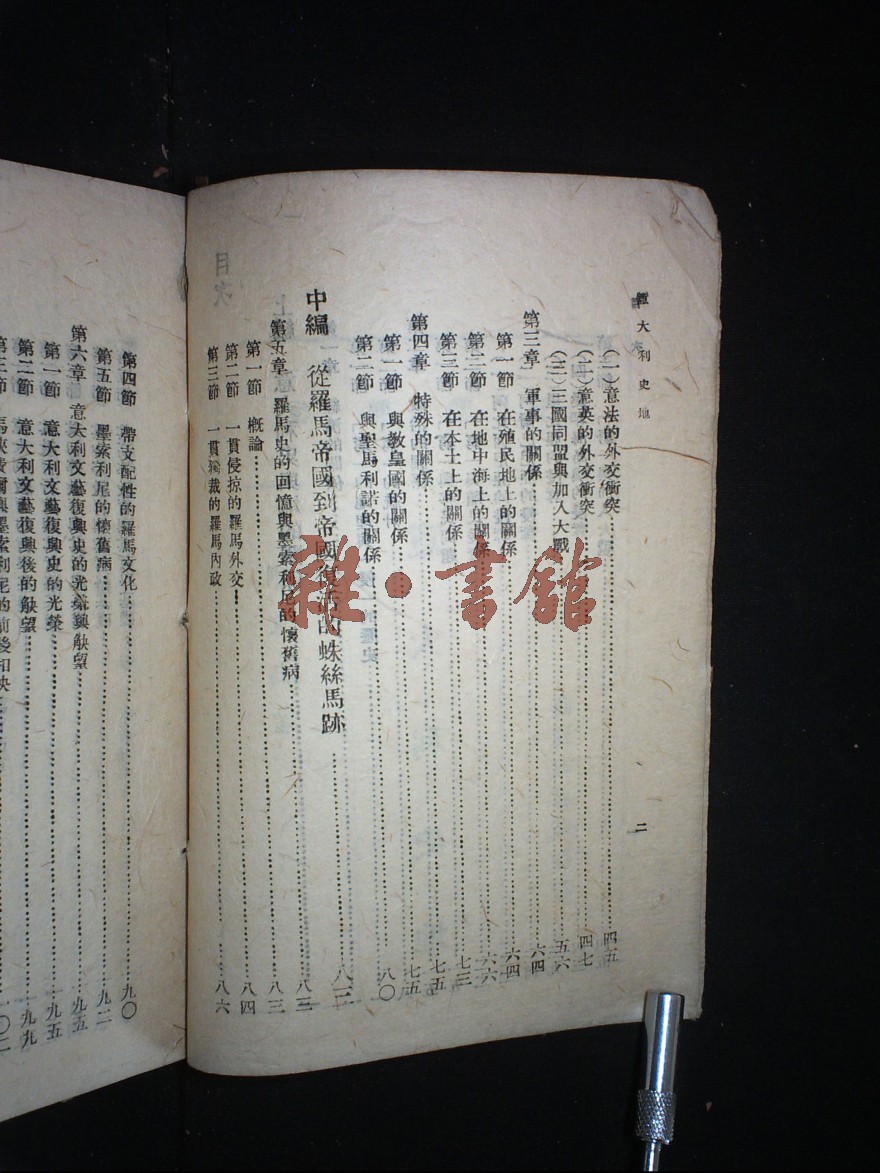 意大利史地
二
(一)意法的外交衝突……四五
(二)意英的外交衝突……四七
(三)三國同盟與加入大戰……五六
第三章 軍事的關係……六四
第一節 在殖民地上的關係……六四
第二節 在地中海上的關係……六六
第三節 在本土上的關係……七三
第四章 特殊的關係……七五
第一節 與教皇國的關係……七五
第二節 與聖馬利諾的關係……八〇
中編 從羅馬帝國到帝國復活的蛛絲馬跡……八三
第五章 羅馬史的回憶與墨索利尼的懷舊病……八三
第一節 概論……八三
第二節 一貫侵掠的羅馬外交……八四
第三節 一貫獨裁的羅馬內政……八六
第四節 帶支配性的羅馬文化……九〇
第五節 墨索利尼的懷舊病……九二
第六章 意大利文藝復興史的光榮與觖望……九五
第一節 意大利文藝復興史的光榮……九五
第二節 意大利文藝復興後的觖望……九九
雜·書館
目次